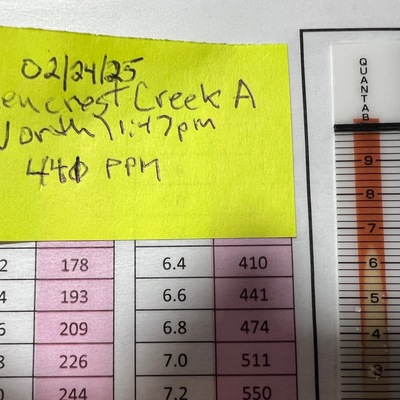 02/24/25
Creek A
1:47pm
PPM
QUANTAB
9
8
7
6
5
4
3
2 178 6.4 410
4 193 6.6 441
6 209 6.8 474
8 226 7.0 511
0 244 7.2 550